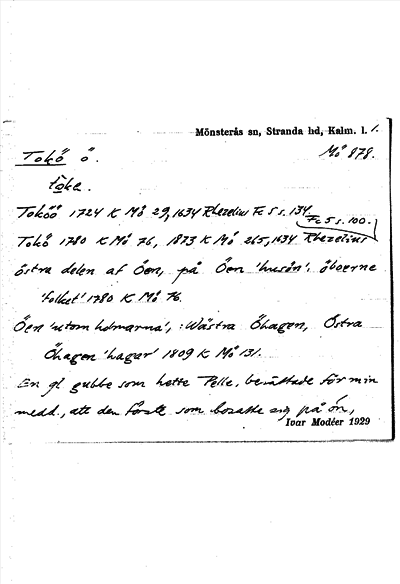 Mönsterås sn, Stranda hd, Kalm. l.
Tokö ö.
Mö 878.
tøka.
Toköö 1724 K Mö 29, 1634 Rhezelius Fc 5 s. 134,
Fc 5 s. 100.
Tokö 1780 K Mö 76, 1873 K Mö 265, 1634 Rhezelius
östra delen af Öen, på Öen 'husön'. öboerne
'folket' 1780 K Mö 76.
Öen 'utom hdmarna', : Wästra Öhagen, Östra
Öhagen 'hagar' 1809 K Mö 131.
En gl gubbe som hette Pelle, berättade för min
medd., att den förste som bosatte sig på ön,
Ivar Modéer 1929